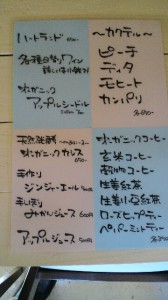 ハートランド
650-
各種自然ワイン
オーガニック
アップルシードル
〜カクテル〜
ピーチ
ディタ
モヒート
カンパリ
各650-
天然発酵
オーガニックカシス
650-
手作り
ジンジャーエール
手しぼり
みかんジュース 600円
アップルジュース 500円
オーガニックコーヒー
玄米コーヒー
穀物コーヒー
生姜紅茶
生姜小豆紅茶
ローズヒップティー
ペパーミントティー